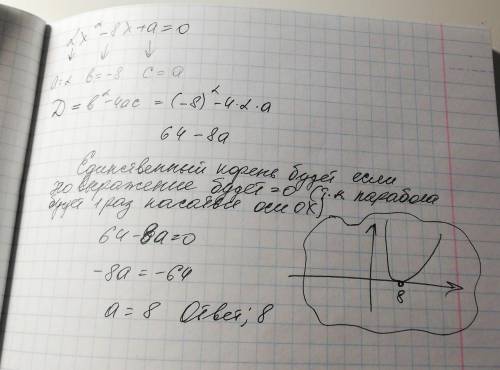 2x²-8x+a=0
a=2 b=-8 c=a
D=b²-4ac = (-8)²-4·2·a
64-8a
Единственный корень будет если
выражение будет =0 (т.к парабола
1 раз касаться оси OX)
64-8a=0
-8a=-64
a=8 Ответ; 8
8